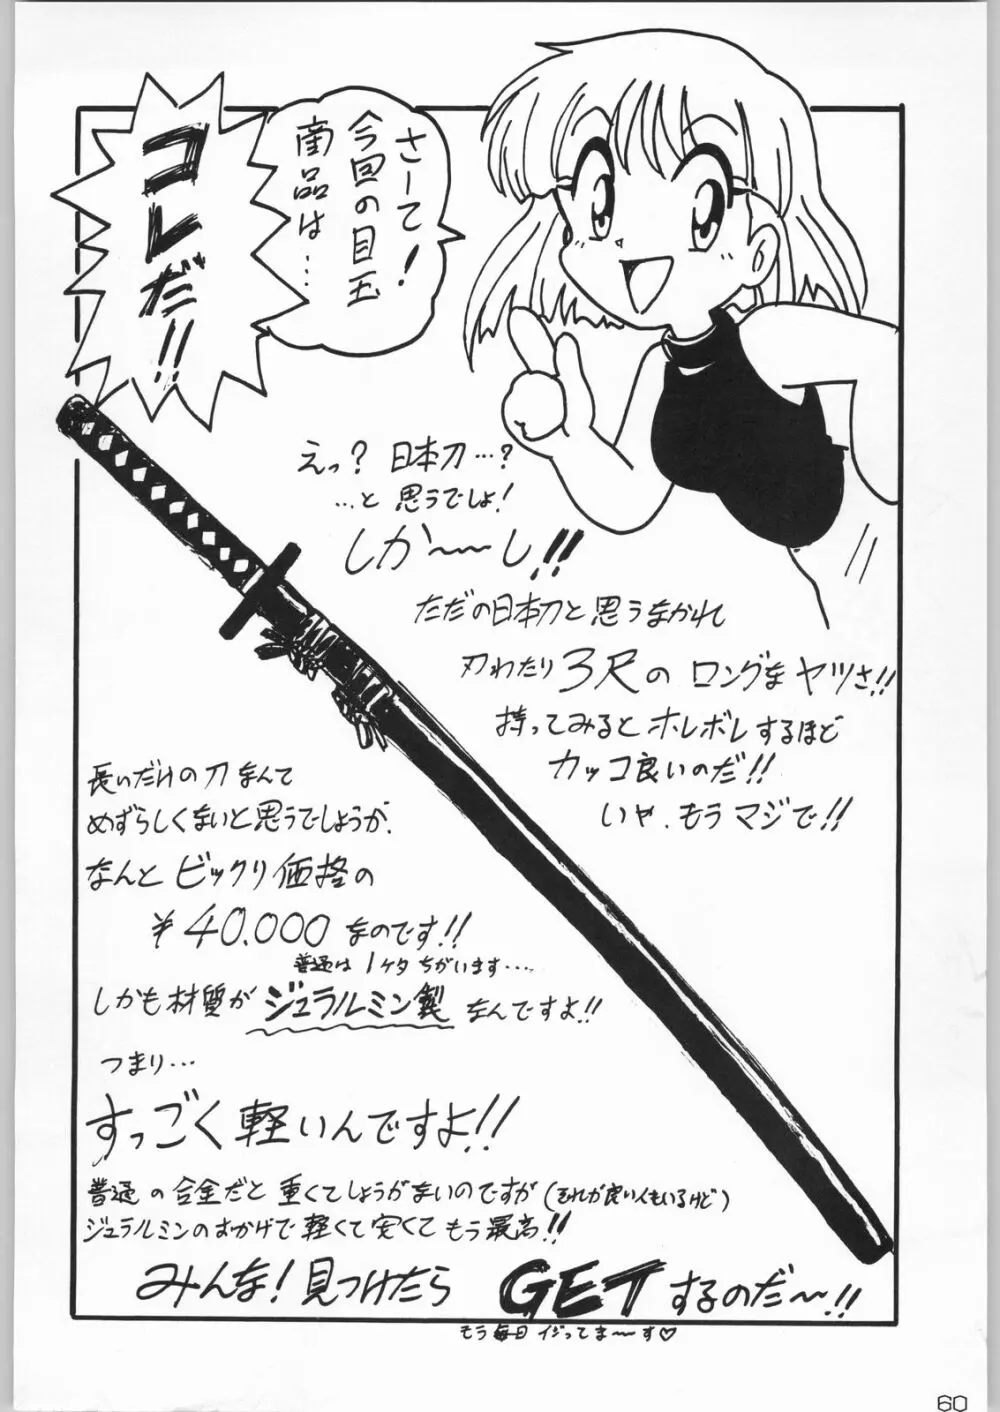 さーて!
今回の目玉
商品は…
コレだ!!
えっ?日本刀…?
…と思うでしょ!
しか〜〜し!!
ただの日本刀と思うなかれ
刃わたり3尺のロングなヤツさ!!
持ってみるとホレボレするほど
カッコ良いのだ!!
いや、もうマジで!!
長いだけの刀なんて
めずらしくないと思うでしょうが、
なんとビックリ価格の
¥40,000なのです!!
普通は1ケタちがいます…
しかも材質がジュラルミン製なんですよ!!
つまり…
すっごく軽いんですよ!!
普通の合金だと重くてしょうがないのですが(それが良い人もいるけど)
ジュラルミンのおかげで軽くて安くてもう最高!!
みんな!見つけたらGETするのだ〜!!
もう毎日イジってま〜す♡
60